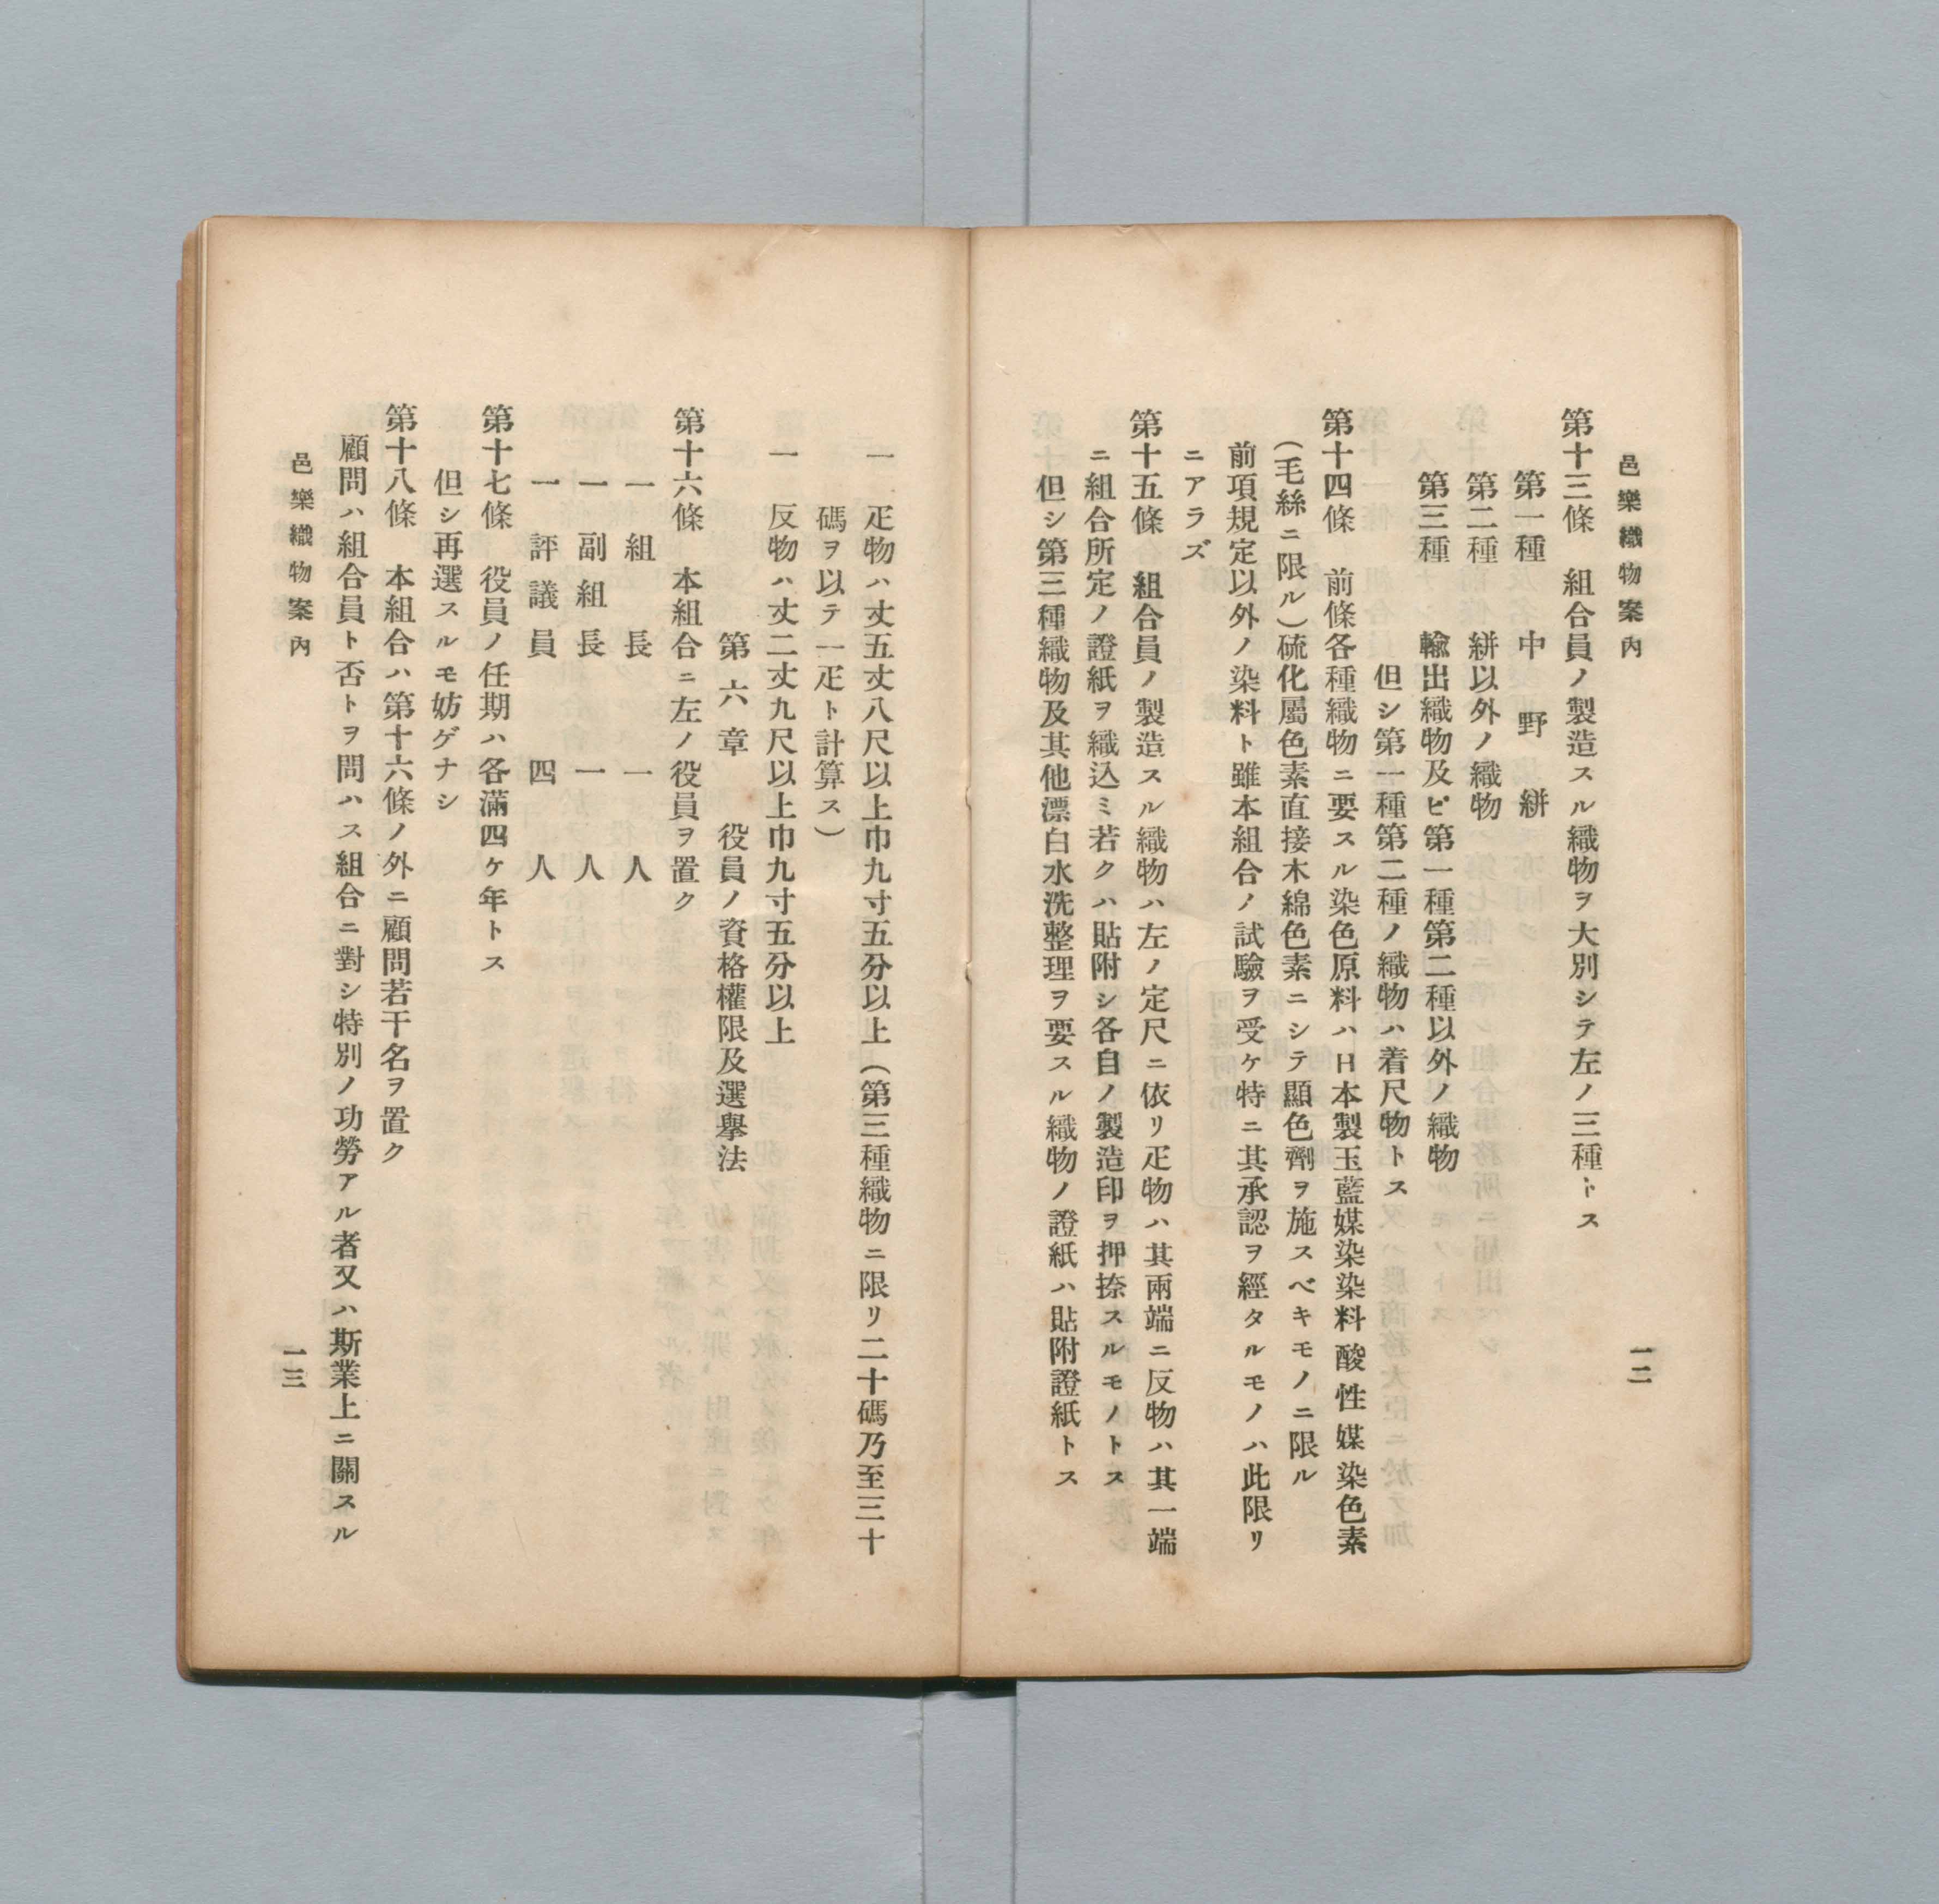 邑樂織物案內
一二
第十三條　組合員ノ製造スル織物ヲ大別シテ左ノ三種トス
第一種　中野絣
第二種　絣以外ノ織物
第三種　輸出織物及ビ第一種第二種以外ノ織物
但シ第一種第二種ノ織物ハ着尺物トス
第十四條　前條各種織物ニ要スル染色原料ハ日本製玉藍媒染染料酸性媒染色素
（毛絲ニ限ル）硫化屬色素直接木綿色素ニシテ顯色劑ヲ施スベキモノニ限ル
前項規定以外ノ染料ト雖本組合ノ試驗ヲ受ケ特ニ其承認ヲ經タルモノハ此限リ
ニアラズ
第十五條　組合員ノ製造スル織物ハ左ノ定尺ニ依リ疋物ハ其兩端ニ反物ハ其一端
ニ組合所定ノ證紙ヲ織込ミ若クハ貼附シ各自ノ製造印ヲ押捺スルモノトス
但シ第三種織物及其他漂白水洗整理ヲ要スル織物ノ證紙ハ貼附證紙トス
一　疋物ハ丈五丈八尺以上巾九寸五分以上（第三種織物ニ限リ二十碼乃至三十
碼ヲ以テ一疋ト計算ス）
一　反物ハ丈二丈九尺以上巾九寸五分以上
第六章　役員ノ資格權限及選擧法
第十六條　本組合ニ左ノ役員ヲ置ク
一　組長　一人
一　副組長　一人
一　評議員　四人
第十七條　役員ノ任期ハ各滿四ケ年トス
但シ再選スルモ妨ゲナシ
第十八條　本組合ハ第十六條ノ外ニ顧問若干名ヲ置ク
顧問ハ組合員ト否トヲ問ハス組合ニ對シ特別ノ功勞アル者又ハ斯業上ニ關スル
邑樂織物案內
一三